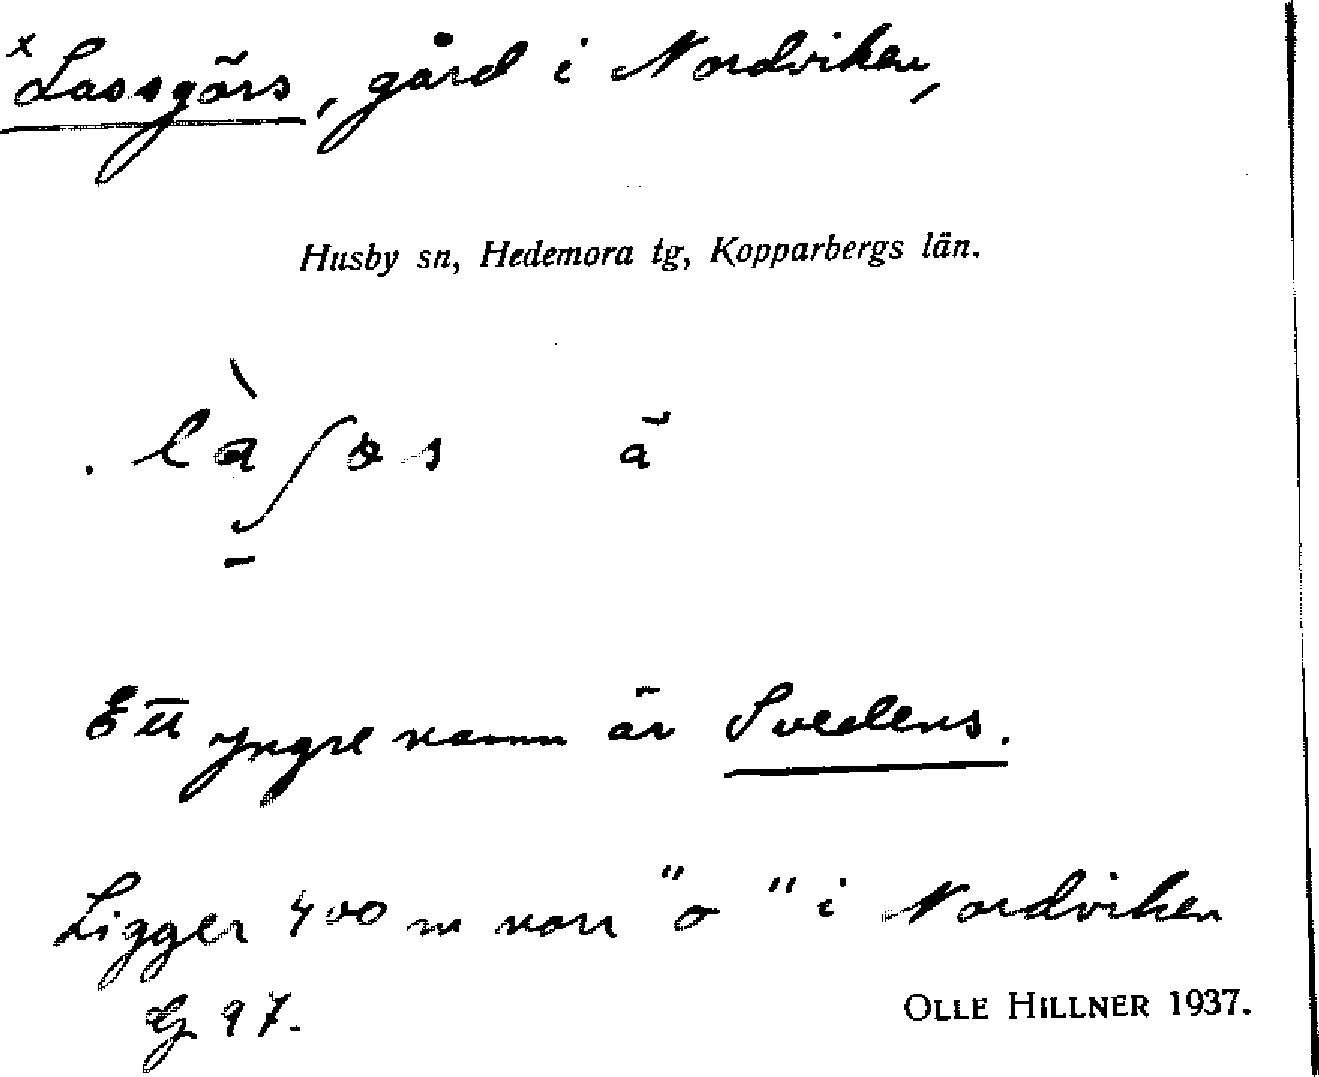 x Lassgörs, gård i Nordviken,
Husby sn, Hedemora tg, Kopparbergs län.
ã
Ett yngre namn är Svedens.
Ligger 400 m norr "o" i Nordviken
G 97.
OLLE HILLNER 1937.